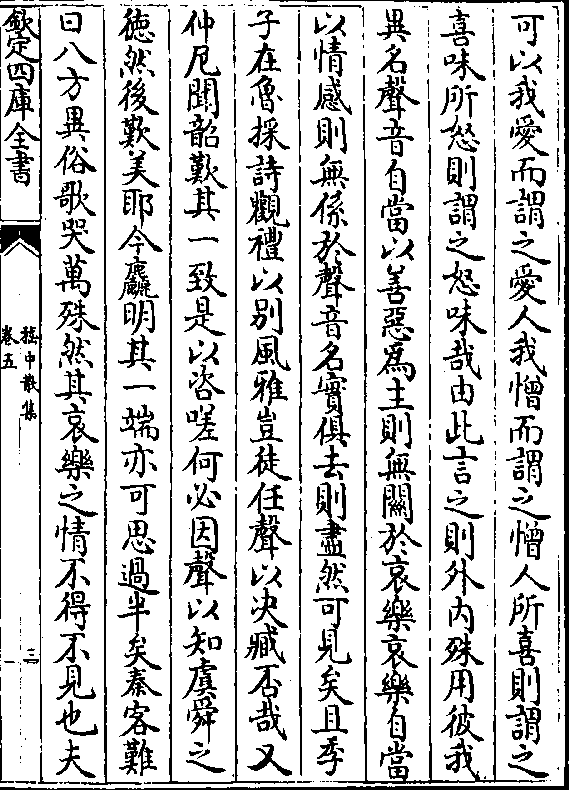 可以我愛而謂之愛人我憎而謂之憎人所喜則謂之
喜味所怒則謂之怒味哉由此言之則外内殊用彼我
異名聲音自當以善惡為主則無關於哀樂哀樂自當
以情感則無係於聲音名實俱去則盡然可見矣且季
子在魯採詩觀禮以別風雅豈徒任聲以決臧否哉又
仲尼聞韶歎其一致是以咨嗟何必因聲以知虞舜之
徳然後歎美耶今麤明其一端亦可思過半矣秦客難
曰八方異俗歌哭萬殊然其哀樂之情不得不見也夫
欽定四庫全書
嵇中散集
卷五
三